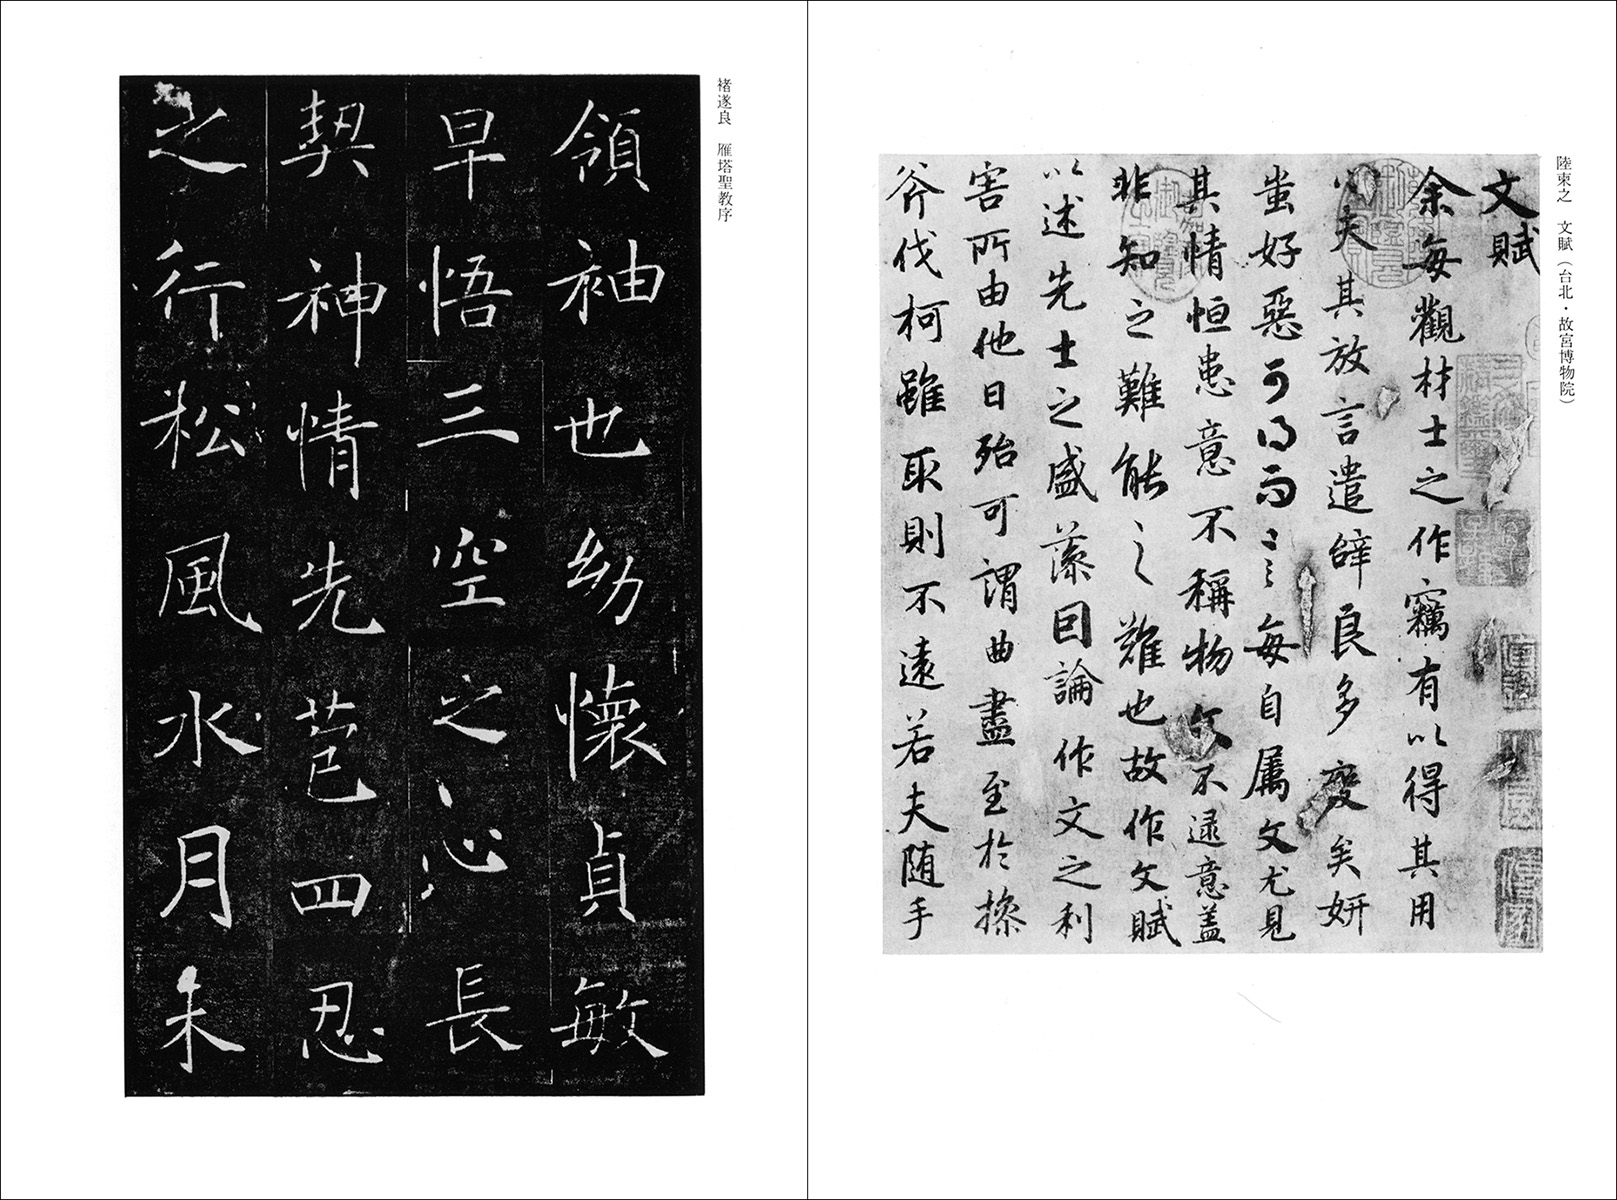 陸柬之　文賦（台北・故宮博物院）
文賦
余每觀材士之作竊有以得其用
心夫其放言遣辭良多變矣妍
蚩好惡可得而言每自属文尤見
其情恒患意不稱物文不逮意盖
非知之難能之難也故作文賦
以述先士之盛藻因論作文之利
害所由他日殆可謂曲盡至於操
斧伐柯雖取則不遠若夫随手
褚遂良　雁塔聖教序
領袖也幼懷貞敏
早悟三空之心長
契神情先苞四忍
之行松風水月未